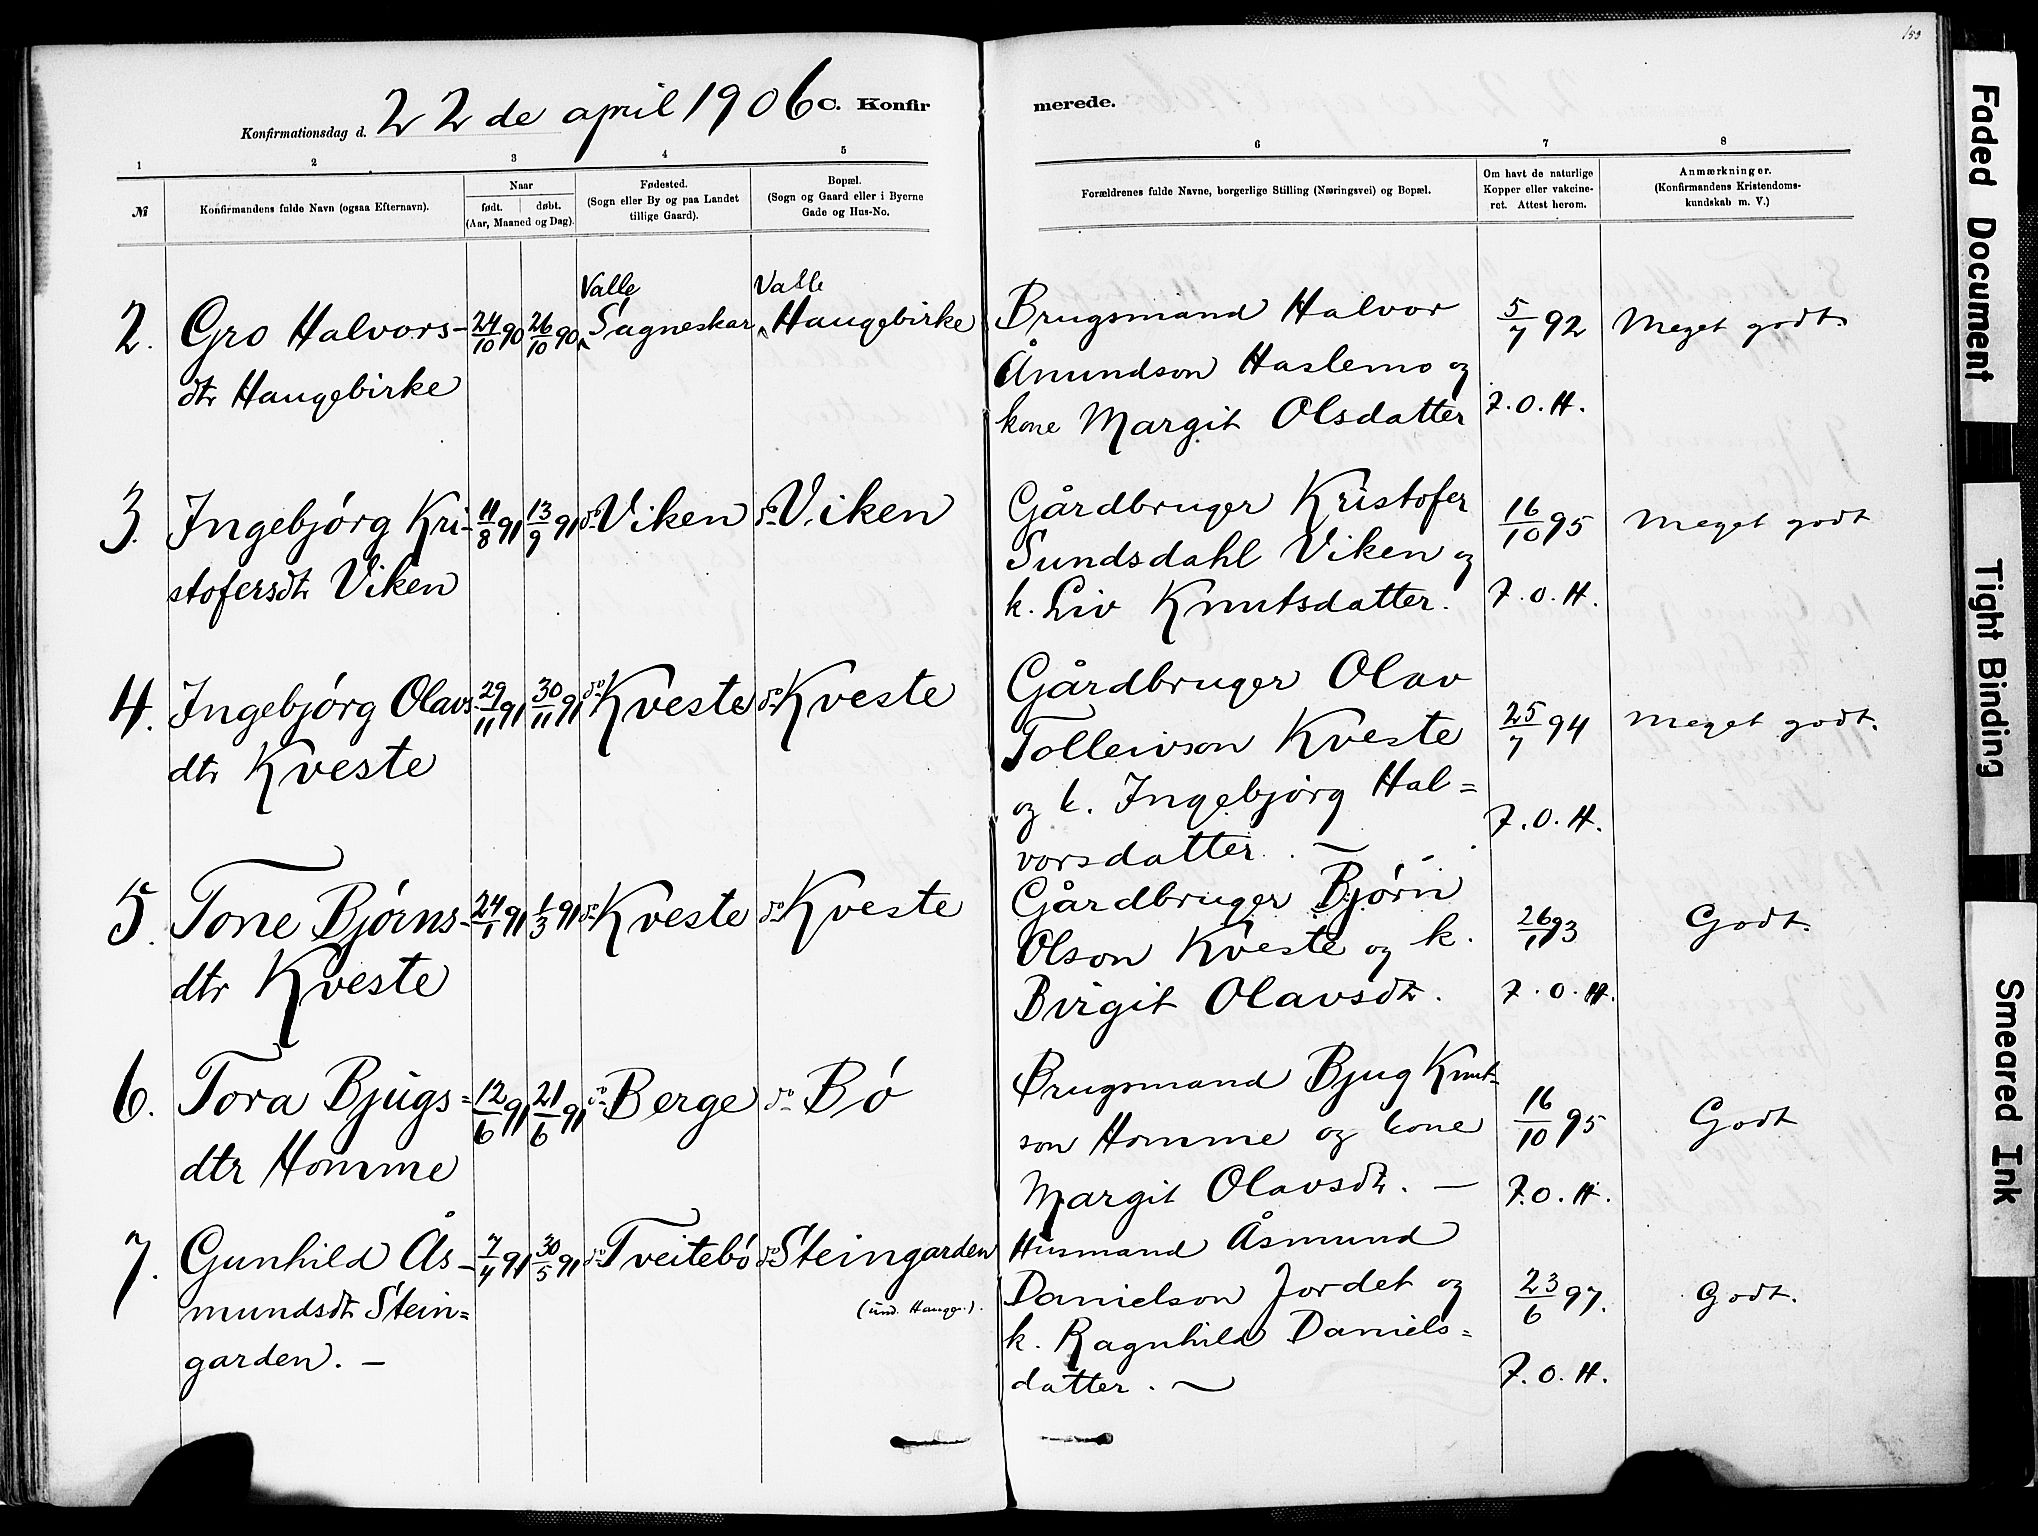 153
Konfirmationsdag d. 22de april 1906 C. Konfirmerede.
1 2 3 4 5 6 7 8
№
Konfirmandens fulde Navn (ogsaa Efternavn).
Naar
født. døbt.
(Aar, Maaned og Dag).
Fødested.
(Sogn eller By og paa Landet
tillige Gaard).
Bopæl.
(Sogn og Gaard eller i Byerne
Gade og Hus-No.
Forældrenes fulde Navne, borgerlige Stilling (Næringsvei) og Bopæl.
Om havt de naturlige
Kopper eller vakcine-
ret. Attest herom.
Anmærkninger.
(Konfirmandens Kristendoms-
kundskab m. V.)
Valle Valle
2. Gro Halvors- 24/10 90 26/10 90 Sagneskar Haugebirke Brugsmand Halvor 5/7 92 Meget godt.
dtr Haugebirke Ånundson Haslemo og
kone Margit Olsdatter F.O.H.
3. Ingebjørg Kri- 11/8 91 13/9 91 do Viken do Viken Gårdbruger Kristofer 16/10 95 Meget godt
stofersdt Viken Sundsdahl Viken og
k. Liv Knutsdatter. F.O.H.
4. Ingebjørg Olavs- 29/11 91 30/11 91 do Kveste do Kveste Gårdbruger Olav
dtr Kveste Tolleivson Kveste 25/7 94 Meget godt.
og k. Ingebjørg Hal=
vorsdatter. – F.O.H.
5. Tone Bjørns- 24/1 91 1/3 91 do Kveste do Kveste Gårdbruger Bjørn
dtr Kveste Olson Kveste og k. 26/11 93 Godt.
Birgit Olavsdt. F.O.H.
6. Tora Bjugs= 12/6 91 21/6 91 do Berge do Bø Brugsmand Bjug Knut-
dtr Homme son Homme og kone 16/10 95 Godt
Margit Olavsdt. – F.O.H.
7. Gunhild Ås- 7/4 91 30/5 91 do Tveitebø do Steingarden Husmand Åsmund
mundsdt Stein= (und. Haugge.). Danielson Jordet og 23/6 97. Godt.
garden. – k. Ragnhild Daniels=
datter. – F.O.H.
Faded Document
Tight Binding
Smeared Ink